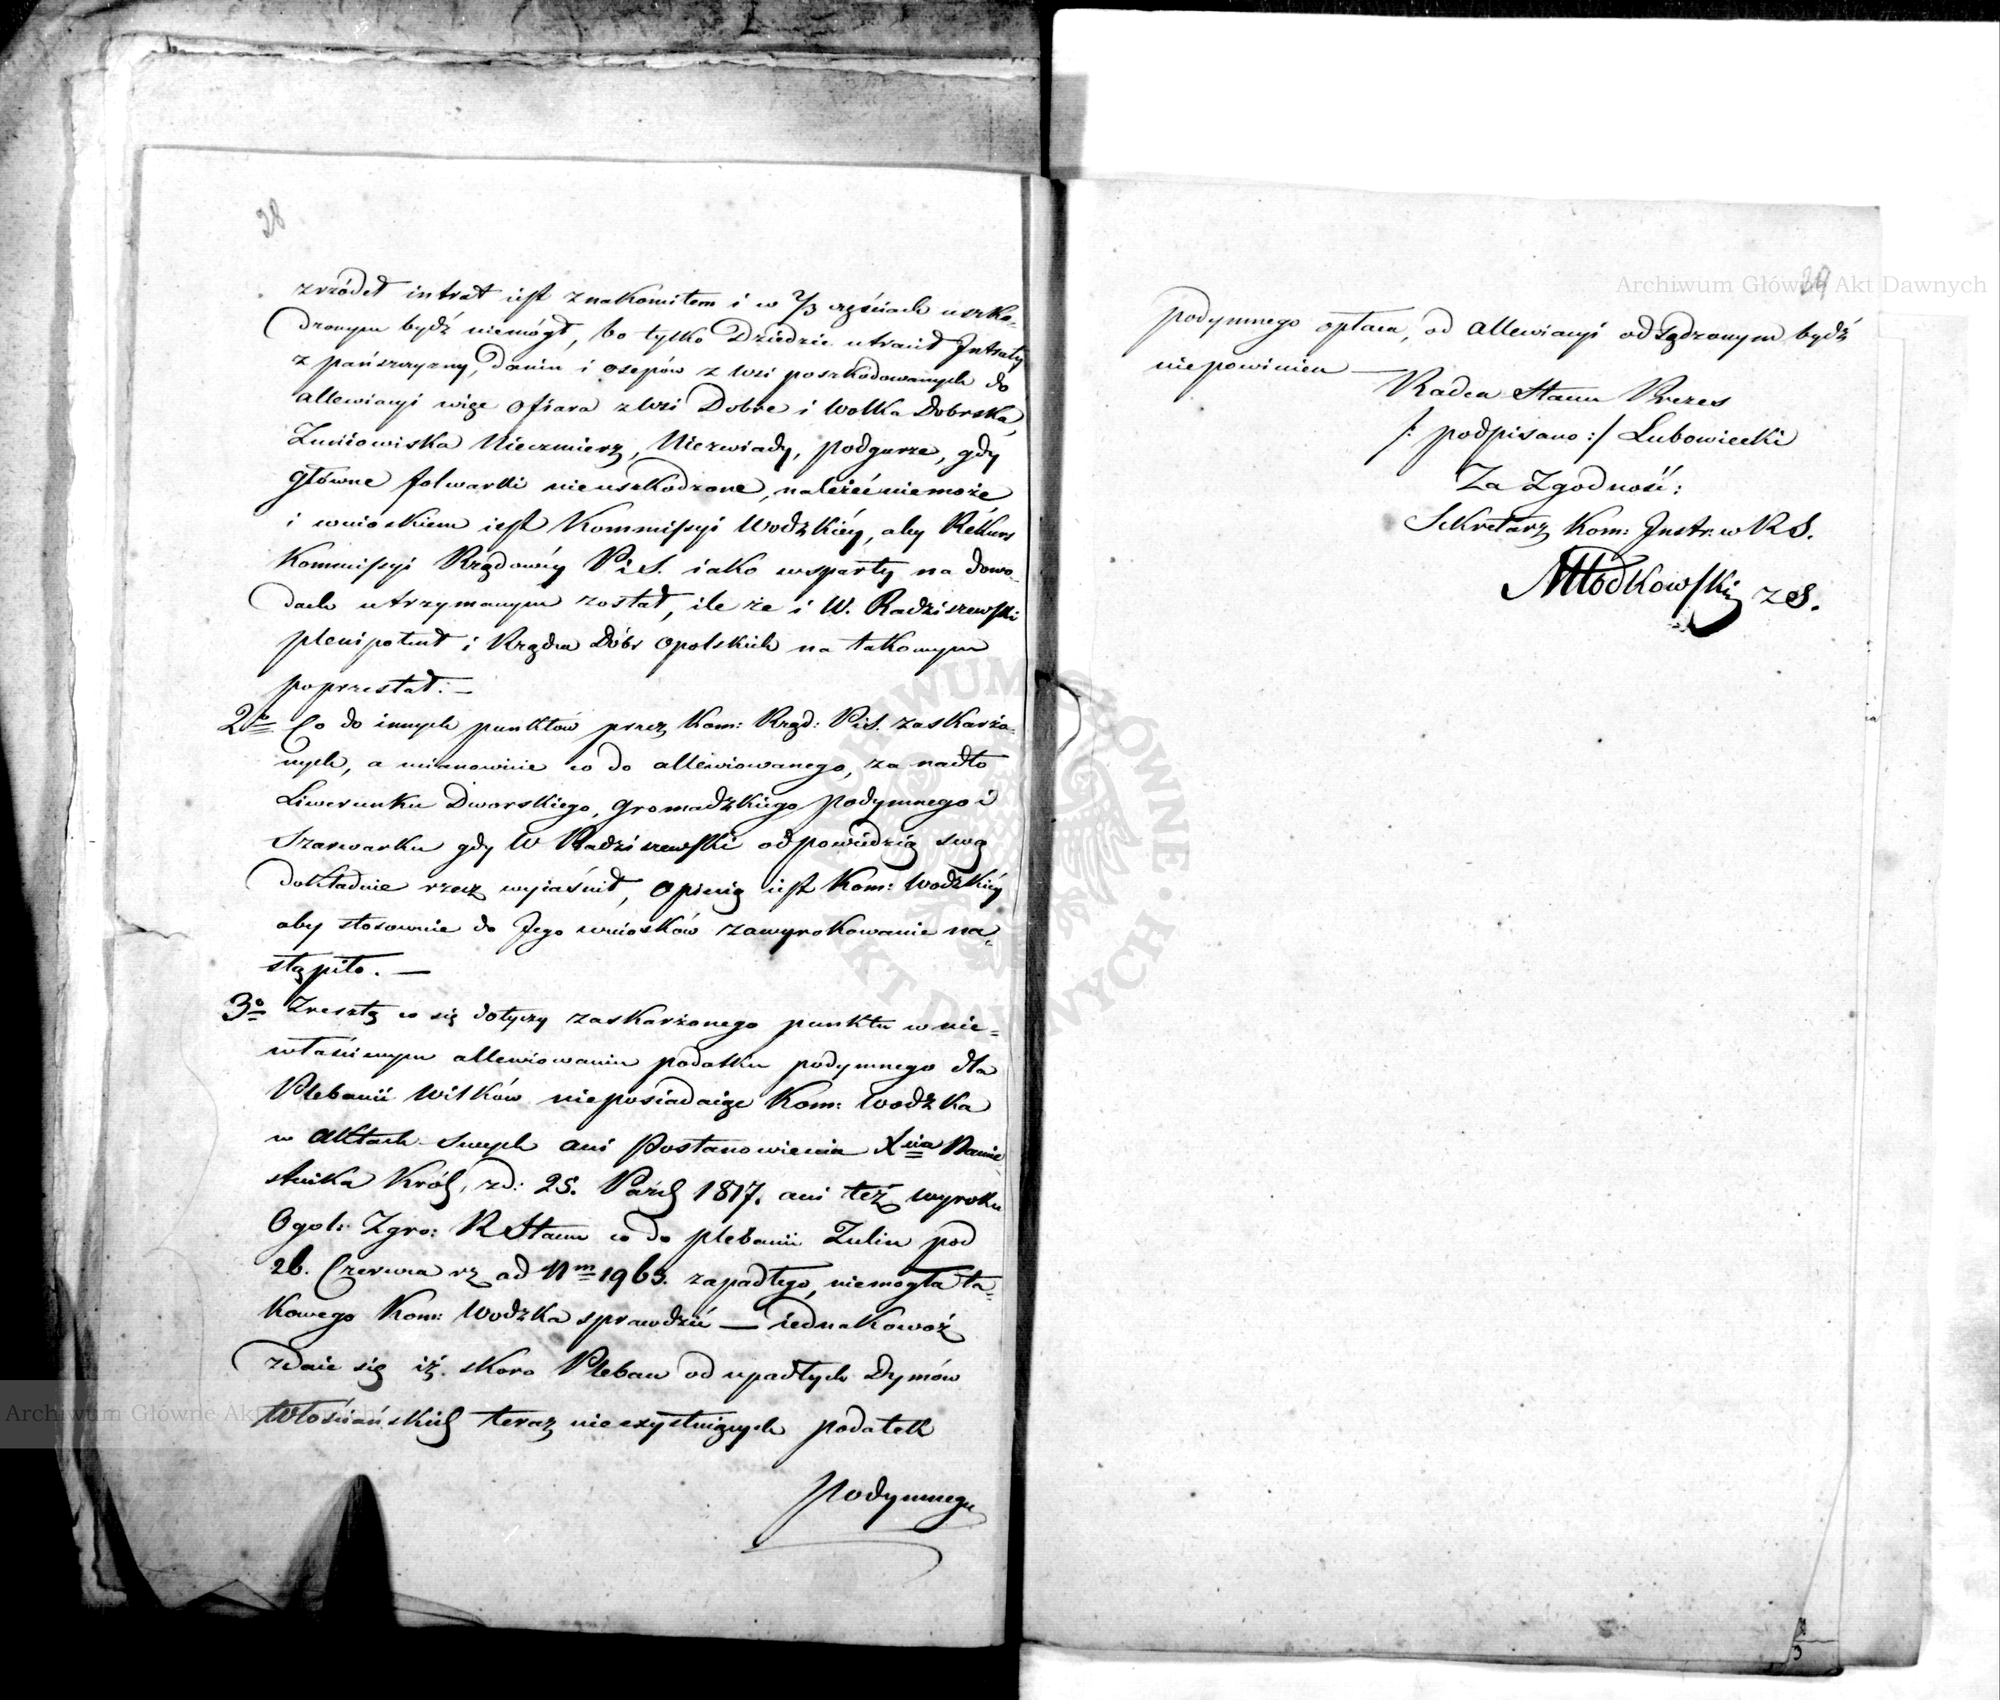 28
zrzódeł intrat iest znakomitem i w 2/3 częściach uszko=
dzonym bydź niemógł, bo tylko Dziedzic utracił Intraty
z pańszczyzny, danin i osepów z wsi poszkodowanych do
allewiacyi więc ofiara z wsi Dobre i Wolka Dobrska,
Niezmierz, Niezwiady, podgurze, gdy
główne folwarki nieuszkodzone, należeć niemoże
i wnioskiem iest Kommissyi Wodzkiéy, aby Rékurs
Kommissyi Rządowéy P i S. iako wsparty na dowo=
dach utrzymanym został, ile że i W. Radziszewski
plenipotent i Rządca Dóbr Opolskich na takowym
poprzestał. —
2o Co do innych punktów przez Kom: Rząd: P i S. zaskarżo=
nych, a mianowicie co do allewiowanego, za nadto
Liwerunku Dworskiego, gromadzkiego podymnego i
Szarwarku gdy W Radziszewski odpowiedzią swą
dokładnie rzecz wyiaśnił, Opinią iest Kom: Wodzkiéy
aby stosownie do Jego wniosków zawyrokowanie na=
stąpiło. —
3o Zresztą co się dotyczy zaskarżonego punktu w nie=
właściwym allewiowaniu podatku podymnego dla
Plebanii Wilków nieposiadaiąc Kom: Wodzka
w Aktach swych ani Postanowienia Xcia Namie=
stnika Król, z d: 25. Paźd 1817. ani też wyroku
Ogol: Zgro: R Stanu co do plebanii Zulin pod
26. Czerwca rz ad Nm 1965. zapadłego, niemogła ta=
kowego Kom: Wodzka sprawdzić — iednakowoż
zdaie się iż skoro Pleban od upadłych Dymów
Włościańskich teraz nieexystuiących podatek
podymnego
29
podymnego opłaca, od allewiacyi odsądzonym bydź
niepowinien —
Radca Stanu Prezes
/: podpisano :/ Lubowiecki
Za Zgodność:
Sekretarz Kom: Instr. w R S.
Młodkowski z S.
Archiwum Główne Akt Dawnych
Archiwum Główne Akt Dawnych
ARCHIWUM GŁÓWNE AKT DAWNYCH